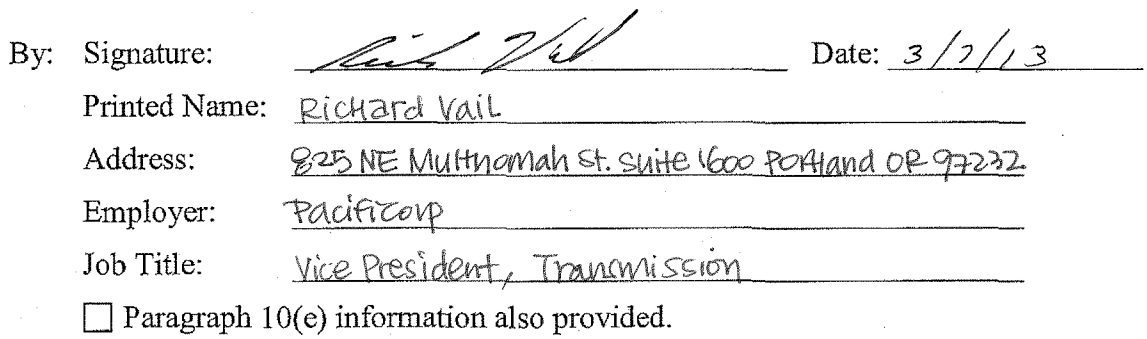 By: Signature: Rick Vail Date: 3/7/13
Printed Name: Richard Vail
Address: 825 NE Multnomah St. Suite 1600 Portland OR 97232
Employer: Pacificorp
Job Title: Vice President, Transmission
☐ Paragraph 10(e) information also provided.